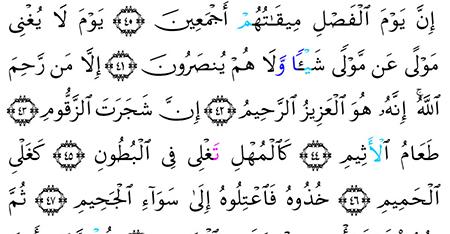 إِنَّ يَوْمَ ٱلْفَصْلِ مِيقَٰتُهُمْ أَجْمَعِينَ ٤٠ يَوْمَ لَا يُغْنِى
مَوْلًى عَن مَّوْلًى شَيْـًٔا وَّلَا هُمْ يُنصَرُونَ ٤١ إِلَّا مَن رَّحِمَ
ٱللَّهُ ۚ إِنَّهُۥ هُوَ ٱلْعَزِيزُ ٱلرَّحِيمُ ٤٢ إِنَّ شَجَرَتَ ٱلزَّقُّومِ ٤٣
طَعَامُ ٱلْأَثِيمِ ٤٤ كَٱلْمُهْلِ تَغْلِى فِى ٱلْبُطُونِ ٤٥ كَغَلْىِ
ٱلْحَمِيمِ ٤٦ خُذُوهُ فَٱعْتِلُوهُ إِلَىٰ سَوَآءِ ٱلْجَحِيمِ ٤٧ ثُمَّ